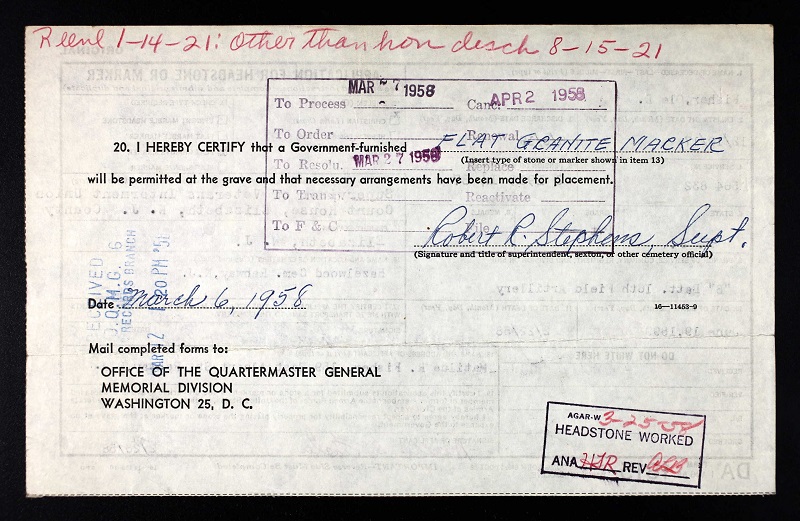 Reenl 1-14-21: Other than hon disch 8-15-21
MAR 27 1958
To Process
Canc. APR 2 1958
To Order
Renewal
20. I HEREBY CERTIFY that a Government-furnished FLAT GRANITE MARKER
(Insert type of stone or marker shown in item 13)
To Resolu. MAR 27 1958
Replace
will be permitted at the grave and that necessary arrangements have been made for placement.
Reactivate
To F & C
File
Robert R. Stephens, Supt.
(Signature and title of superintendent, sexton, or other cemetery official)
O.Q.M.G. 6
RECORDS BRANCH
Date March 6, 1958
16—11453-9
Mail completed forms to:
OFFICE OF THE QUARTERMASTER GENERAL
MEMORIAL DIVISION
WASHINGTON 25, D. C.
AGAR-W 3-25-58
HEADSTONE WORKED
ANA HJR REV